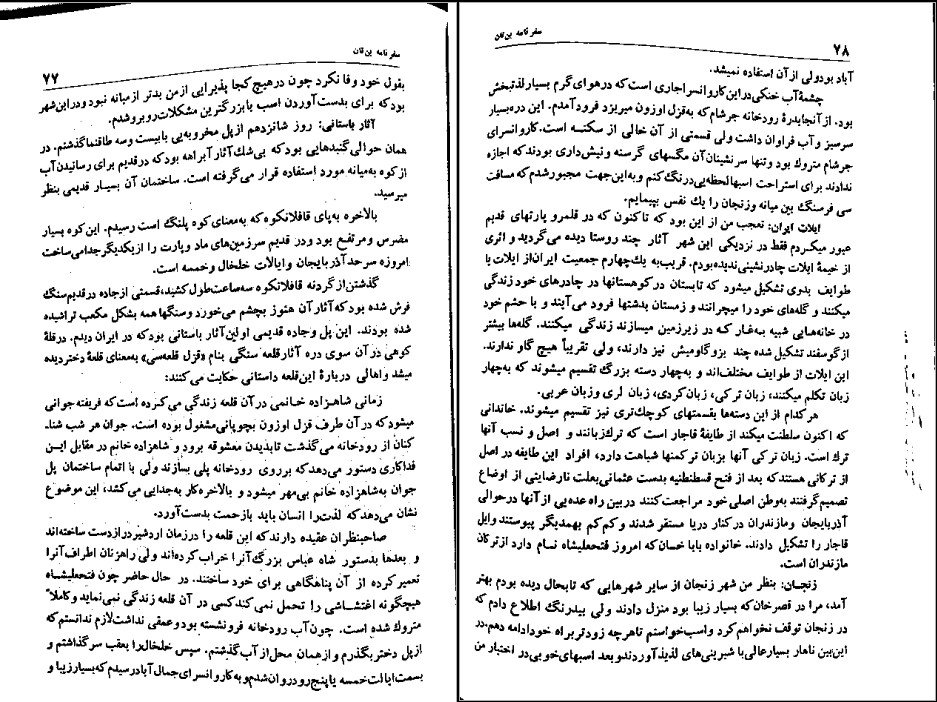 سفرنامه بن‌تان
۷۷
بقول خود وفا نکرد چون در هیچ کجا پذیرایی از من بدتر از میانه نبود و در این شهر
بود که برای بدست آوردن اسب با بزرگترین مشکلات روبرو شدم.
آثار باستانی: روز شانزدهم از پل مخروبه‌یی با بیست و سه طاقنما گذشتم. در
همان حوالی گنبدهایی بود که بی‌شك آثار آبراهه بود که در قدیم برای رسانیدن آب
از کوه به میانه مورد استفاده قرار می‌گرفته است. ساختمان آن بسیار قدیمی بنظر
میرسید.
بالاخره به پای قافلانکوه که به‌معنای کوه پلنگ است رسیدم. این کوه بسیار
مضرس و مرتفع بود و در قدیم سرزمین‌های ماد و پارت را از یکدیگر جدا می‌ساخت
امروزه سرحد آذربایجان و ایالات خلخال و خمسه است.
گذشتن از گردنه قافلانکوه سه ساعت طول کشید، قسمتی از جاده در قدیم سنگ
فرش شده بود که آثار آن هنوز بچشم می‌خورد و سنگها همه بشکل مکعب تراشیده
شده بودند. این پل و جاده قدیمی اولین آثار باستانی بود که در ایران دیدم. در قلهٔ
کوهی در آن سوی دره آثار قلعه سنگی بنام «قزل قلعه‌سی» به‌معنای قلعهٔ دختر دیده
میشد و اهالی دربارهٔ این قلعه داستانی حکایت می‌کنند:
زمانی شاهزاده خانمی در آن قلعه زندگی می‌کرده است که فریفته جوانی
میشود که در آن طرف قزل اوزون بچوپانی مشغول بوده است. جوان هر شب شنا.
کنان از رودخانه می‌گذشت تا بدیدن معشوقه برود و شاهزاده خانم در مقابل ایـن
فداکاری دستور می‌دهد که برروی رودخانه پلی بسازند ولی با اتمام ساختمان پل
جوان به‌شاهزاده خانم بی‌مهر میشود و بالاخره کار به‌جدایی می‌کشد، این موضوع
نشان می‌دهد که لذت را انسان باید با زحمت بدست آورد.
صاحبنظران عقیده دارند که این قلعه را در زمان اردشیر درازدست ساخته‌اند
و بعدها بدستور شاه عباس بزرگ آنرا خراب کرده‌اند ولی راهزنان اطراف آنرا
تعمیر کرده از آن پناهگاهی برای خود ساختند. در حال حاضر چون فتحعلیشاه
هیچگونه اغتشاشی را تحمل نمی‌کند کسی در آن قلعه زندگی نمی‌نماید و کاملاً
متروك شده است. چون آب رودخانه فرو نشسته بود و عمقی نداشت لازم ندانستم که
از پل دختر بگذرم و از همان محل از آب گذشتم. سپس خلخال را بعقب سر گذاشتم و
بسمت ایالت خمسه یا پنج رود روان شدم و به کاروانسرای جمال‌آباد رسیدم که بسیار زیبا و
سفرنامه بن‌تان
۷۸
آباد بود ولی از آن استفاده نمیشد.
چشمهٔ آب خنکی در این کاروانسرا جاری است که در هوای گرم بسیار لذتبخش
بود. از آنجا بدرهٔ رودخانه جرشام که به‌قزل اوزون میریزد فرود آمدم. این دره بسیار
سرسبز و آب فراوان داشت ولی قسمتی از آن خالی از سکنـه است. کاروانسرای
جرشام متروك بود و تنها سرنشینان آن مگسهای گرسنه و نیش‌داری بودند که اجازه
ندادند برای استراحت اسبها لحظه‌یی درنگ کنم و به‌این جهت مجبور شدم که مسافت
سی فرسنگ بین میانه و زنجان را یك نفس بپیمایم.
ایلات ایران: تعجب من از این بود که تاکنون که در قلمرو پارتهای قدیم
عبور میکردم فقط در نزدیکی این شهر آثار چند روستا دیده می‌گردید و اثری
از خیمهٔ ایلات چادرنشینی ندیده بودم. قریب به یك چهارم جمعیت ایران از ایلات یا
طوایف بدوی تشکیل میشود که تابستان در کوهستانها در چادرهای خود زندگی
میکنند و گله‌های خود را میچرانند و زمستان بدشتها فرود می‌آیند و با حشم خود
در خانه‌هایی شبیه به‌غـار کـه در زیرزمین میسازند زندگی میکنند. گله‌ها بیشتر
از گوسفند تشکیل شده چند بز و گاومیش نیز دارند، ولی تقریباً هیچ گاو ندارند.
این ایلات از طوایف مختلف‌اند و به‌چهار دسته بزرگ تقسیم میشوند که به‌چهار
زبان تکلم میکنند، زبان ترکی، زبان کردی، زبان لری و زبان عربی.
هر کدام از این دسته‌ها بقسمتهای کوچك‌تری نیز تقسیم میشوند. خاندانی
که اکنون سلطنت میکند از طایفهٔ قاجار است که ترك‌زبانند و اصل و نسب آنها
ترك است. زبان ترکی آنها بزبان ترکمنها شباهت دارد، افراد این طایفه در اصل
از ترکانی هستند که بعد از فتح قسطنطنیه بدست عثمانی بعلت نارضایتی از اوضاع
تصمیم گرفتند به‌وطن اصلی خود مراجعت کنند در بین راه عده‌یی از آنها در حوالی
آذربایجان و مازندران در کنار دریا مستقر شدند و کم‌کم بهمدیگر پیوستند و ایل
قاجار را تشکیل دادند. خانواده بابا خسان که امروز فتحعلیشاه نـام دارد از ترکان
مازندران است.
زنجـان: بنظر من شهر زنجان از سایر شهرهایی که تابحال دیده بودم بهتر
آمد، مرا در قصر خان که بسیار زیبا بود منزل دادند ولی بیدرنگ اطلاع دادم که
در زنجان توقف نخواهم کرد و اسب خواستم تا هر چه زودتر براه خود ادامه دهم. در
این بین ناهار بسیار عالی با شیرینی‌های لذیذ آوردند و بعد اسبهای خوبی در اختیار من